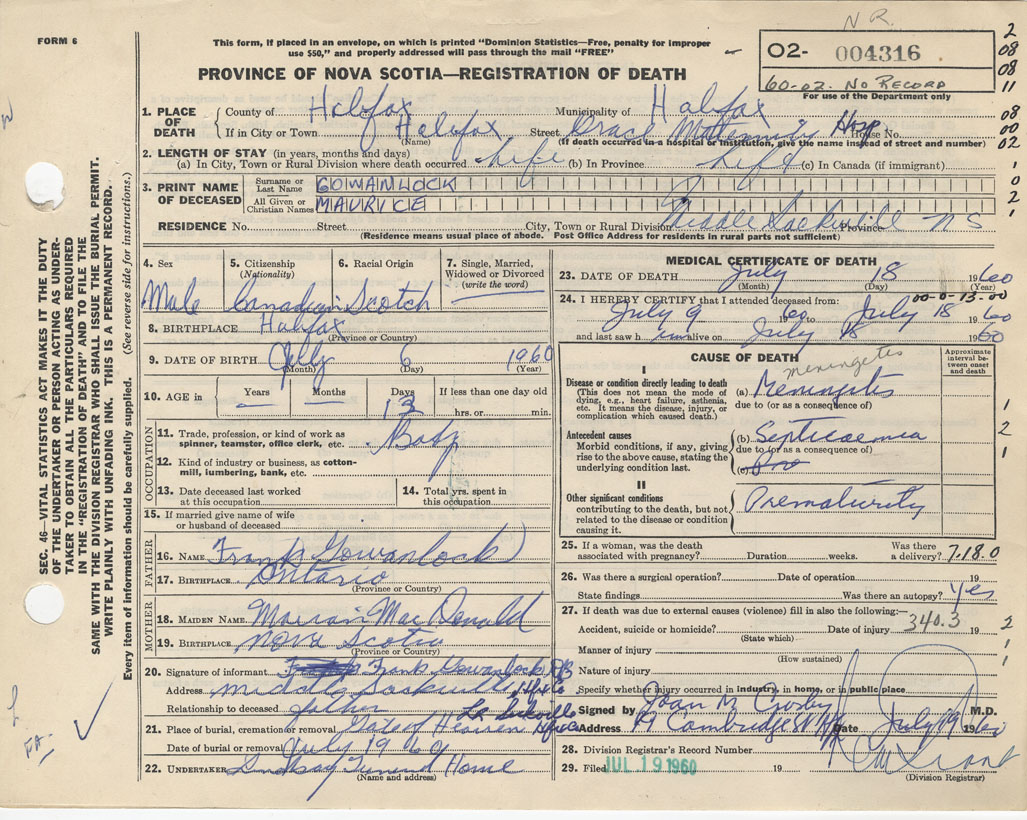 N R.
FORM 6
This form, if placed in an envelope, on which is printed "Dominion Statistics—Free, penalty for improper
use $50," and properly addressed will pass through the mail "FREE"
O2- 004316
60-02. No RECORD
For use of the Department only
PROVINCE OF NOVA SCOTIA—REGISTRATION OF DEATH
2
08
08
11
1. PLACE OF DEATH
County of Halifax Municipality of Halifax
08
If in City or Town Halifax Street Grace Maternity Hosp House No.
00
(Name) (If death occurred in a hospital or institution, give the name instead of street and number)
02
2. LENGTH OF STAY (in years, months and days)
(a) In City, Town or Rural Division where death occurred life (b) In Province life (c) In Canada (if immigrant)
1
3. PRINT NAME OF DECEASED
Surname or Last Name GOWANLOCK
0
All Given or Christian Names MAURICE
2
RESIDENCE No. Street City, Town or Rural Division Middle Sackville Province N S
1
(Residence means usual place of abode. Post Office Address for residents in rural parts not sufficient)
4. Sex
Male
5. Citizenship
(Nationality)
Canadian
6. Racial Origin
Scotch
7. Single, Married,
Widowed or Divorced
(write the word)
8. BIRTHPLACE Halifax
(Province or Country)
9. DATE OF BIRTH July 6 1960
(Month) (Day) (Year)
10. AGE in
Years Months Days If less than one day old
— — 13 hrs. or min.
OCCUPATION
11. Trade, profession, or kind of work as
spinner, teamster, office clerk, etc. Baby
12. Kind of industry or business, as cotton-
mill, lumbering, bank, etc.
13. Date deceased last worked
at this occupation
14. Total yrs. spent in
this occupation
15. If married give name of wife
or husband of deceased
FATHER
16. NAME Frank Gowanlock
17. BIRTHPLACE Ontario
(Province or Country)
MOTHER
18. MAIDEN NAME Marian MacDonald
19. BIRTHPLACE NOVA Scotia
(Province or Country)
20. Signature of informant Frank Gowanlock
Address Middle Sackville Hfx Co
Relationship to deceased father
Lr Sackville
21. Place of burial, cremation or removal Gate of Heaven Hfx Co
Date of burial or removal July 19 60
22. UNDERTAKER Lindsay Funeral Home
(Name and address)
MEDICAL CERTIFICATE OF DEATH
23. DATE OF DEATH July 18 1960
(Month) (Day) (Year)
24. I HEREBY CERTIFY that I attended deceased from: 00-0-13-00
July 9 1960 to July 18 1960
and last saw h im alive on July 18 1960
CAUSE OF DEATH
Approximate
interval between
onset
and death
meningetes
I
Disease or condition directly leading to death
(This does not mean the mode of
dying, e.g., heart failure, asthenia,
etc. It means the disease, injury, or
complication which caused death.)
(a) Meningetis
due to (or as a consequence of)
1
Antecedent causes
Morbid conditions, if any, giving
rise to the above cause, stating the
underlying condition last.
(b) Septicaemia
2
due to (or as a consequence of)
1
(c)
II
Other significant conditions
contributing to the death, but not
related to the disease or condition
causing it.
Prematurity
25. If a woman, was the death
associated with pregnancy? Duration weeks. Was there
a delivery? 7.18.0
26. Was there a surgical operation? Date of operation 19
State findings Was there an autopsy? yes
27. If death was due to external causes (violence) fill in also the following:—
340.3
Accident, suicide or homicide? Date of injury 19
2
(State which)
Manner of injury
1
(How sustained)
Nature of injury
1
Specify whether injury occurred in industry, in home, or in public place
Signed by Joan M Crosby M.D.
Address 19 Cambridge St Hfx Date July 19 1960
28. Division Registrar's Record Number
29. Filed JUL 19 1960 19
(Division Registrar)
SEC. 46—VITAL STATISTICS ACT MAKES IT THE DUTY
OF THE UNDERTAKER OR PERSON ACTING AS UNDER-
TAKER TO OBTAIN ALL THE PARTICULARS REQUIRED
IN THE "REGISTRATION OF DEATH" AND TO FILE THE
SAME WITH THE DIVISION REGISTRAR WHO SHALL ISSUE THE BURIAL PERMIT.
WRITE PLAINLY WITH UNFADING INK. THIS IS A PERMANENT RECORD.
Every item of information should be carefully supplied. (See reverse side for instructions.)